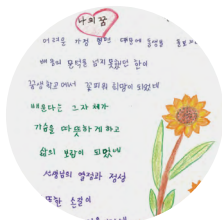 나의 꿈
어려운 가정 형편 때문에 동생을 돌보
배움의 문턱을 넘지 못했던 한이
꿈생학교에서 꽃피워 희망이 되었네
배운다는 그 자체가
가슴을 따뜻하게 하고
삶의 보람이 되었네
선생님의 열정과 정성
또한 손길이